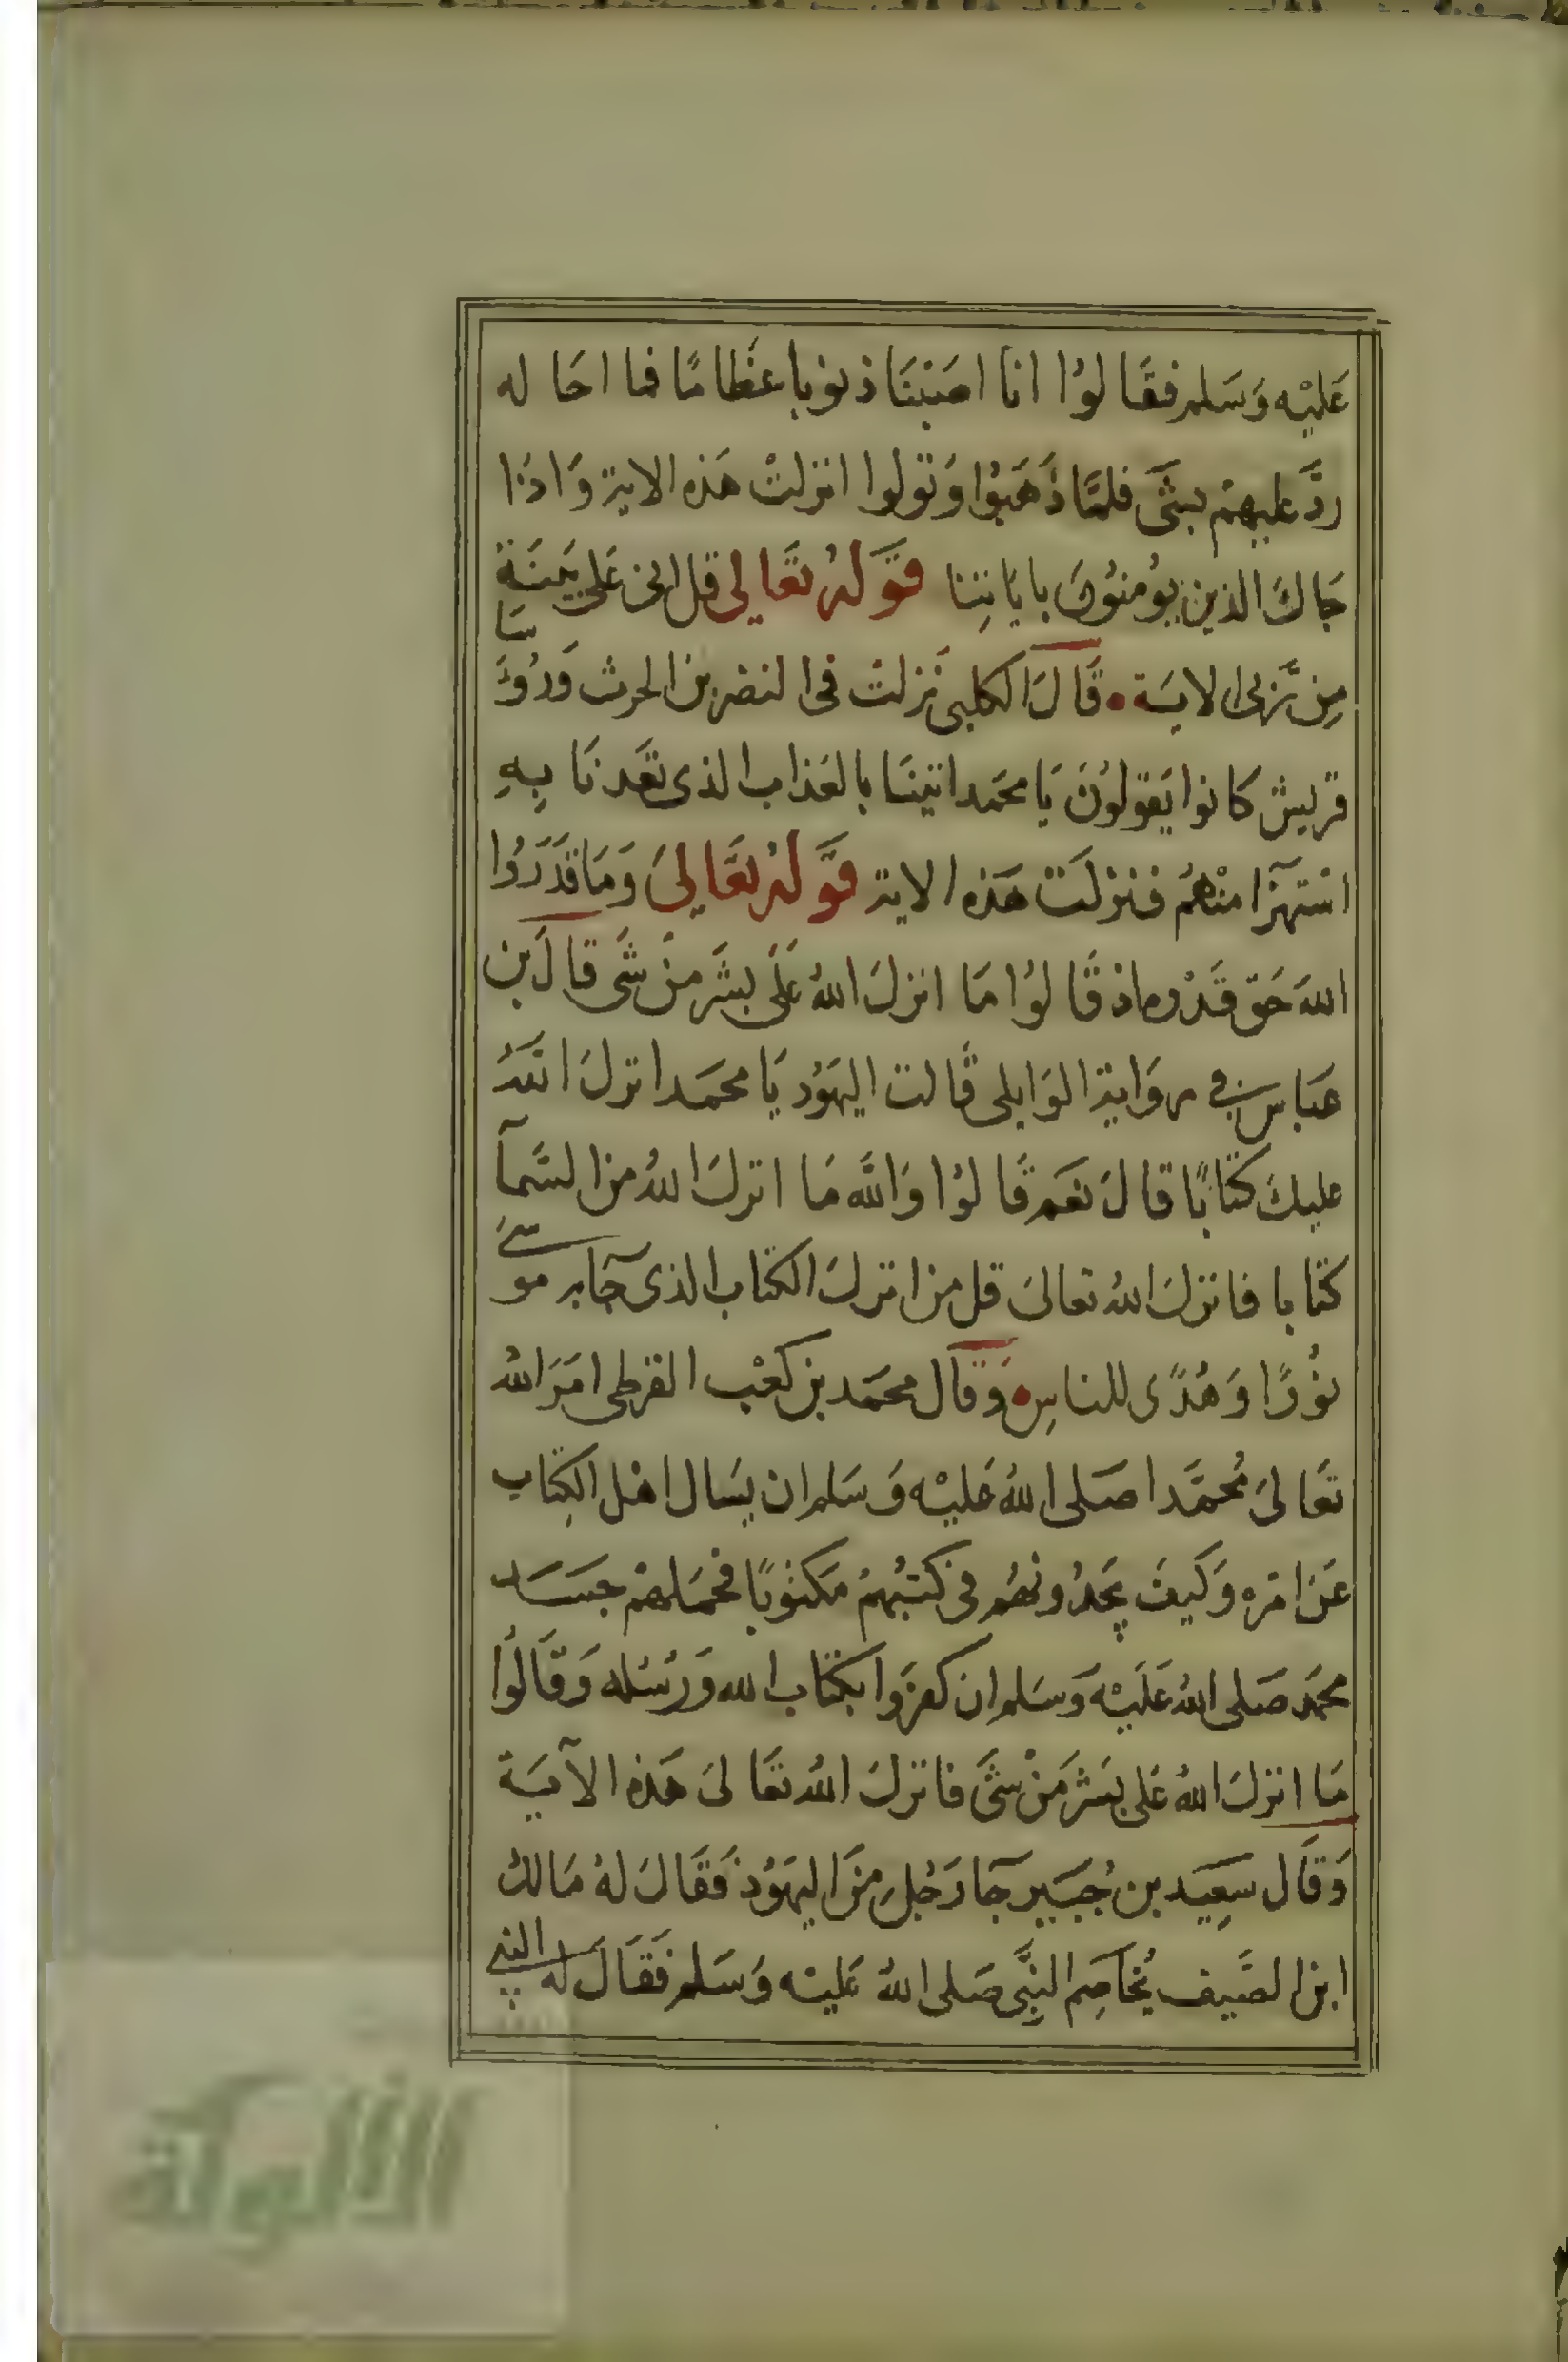 عَليْه وَسَلم فقَالوُا انا اصَبْنَا ذنوبا عظَامًا فما احَاله
ردَّ عليهمْ بشَىَ فلمَّا ذَهَبُوا وَتولوا انزلتْ هَذه الاية وَاذَا
جَاكَ الذين يؤُمنوُنَ باياتِنا قَولهُ تعَالى قل انى عَلى بَيّنَةٍ
مِن رَّبى الايَة قَالَ الكلبى نزلتْ فى النضر بن الحرث وَرُؤسَا
قريش كانوا يَقولوُنَ يَا محمَد اتينَا بالعَذاب الذى تعَدنَا بِهِ
اسْتهزآ منْهُم فنزلَت هَذه الاية قوَّلهُ تعَالىَ وَمَا قدَرُوا
اللهَ حَق قَدْره اذ قَالوُا مَا انزلَ اللهُ عَلَى بشَر منْ شَى قالَ بن
عبَاس فى روَاية الوَابلى قَالت اليَهوُد يَا محمَد انزلَ اللهُ
عليكَ كتَابًا قالَ نعَم قَالوُا وَاللَّه مَا انزلَ اللهُ منَ السَّمآ
كتابا فانزلَ اللهُ تعالىَ قل من انزلَ الكتاب الذى جآ به موسى
نوُرًا وَهُدًى للناسِ وَقَال محمَد بن كعْب القرظى امَرَ اللهُ
تعَالىَ مُحمَّدا صَلى اللهُ عَليْه وَسَلم ان يسَال اهْل الكِتاب
عَن امْره وَكيفَ يجدُونهُم فى كتبُهمْ مَكتوُبًا فحمَلهمْ حسَد
محمَد صَلى اللهُ عَليْه وَسَلم ان كفرَوا بكتاب الله وَرَسُله وَقَالوُا
مَا انزلَ اللهُ عَلى بَشر منْ شىَ فانزلَ اللهُ تعَالىَ هَذه الآيَة
وَقَال سَعِيَد بن جُبَير جآ رَجُل مِنَ اليهَوُد فَقَالَ لهُ مَالكُ
ابن الصَّيف يُخَاصِم النبَّى صَلى اللهُ عَليْه وَسَلم فَقَالَ له النبى
الألوكة